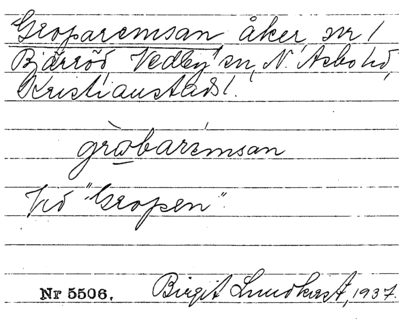 Groparemsan åker nr 1
Bjärröd Vedby sn, N. Åsbo hd,
Kristianstads l.
grωbarémsan
Vid "Gropen".
Nr 5506. Birgit Lundkvist, 1937.